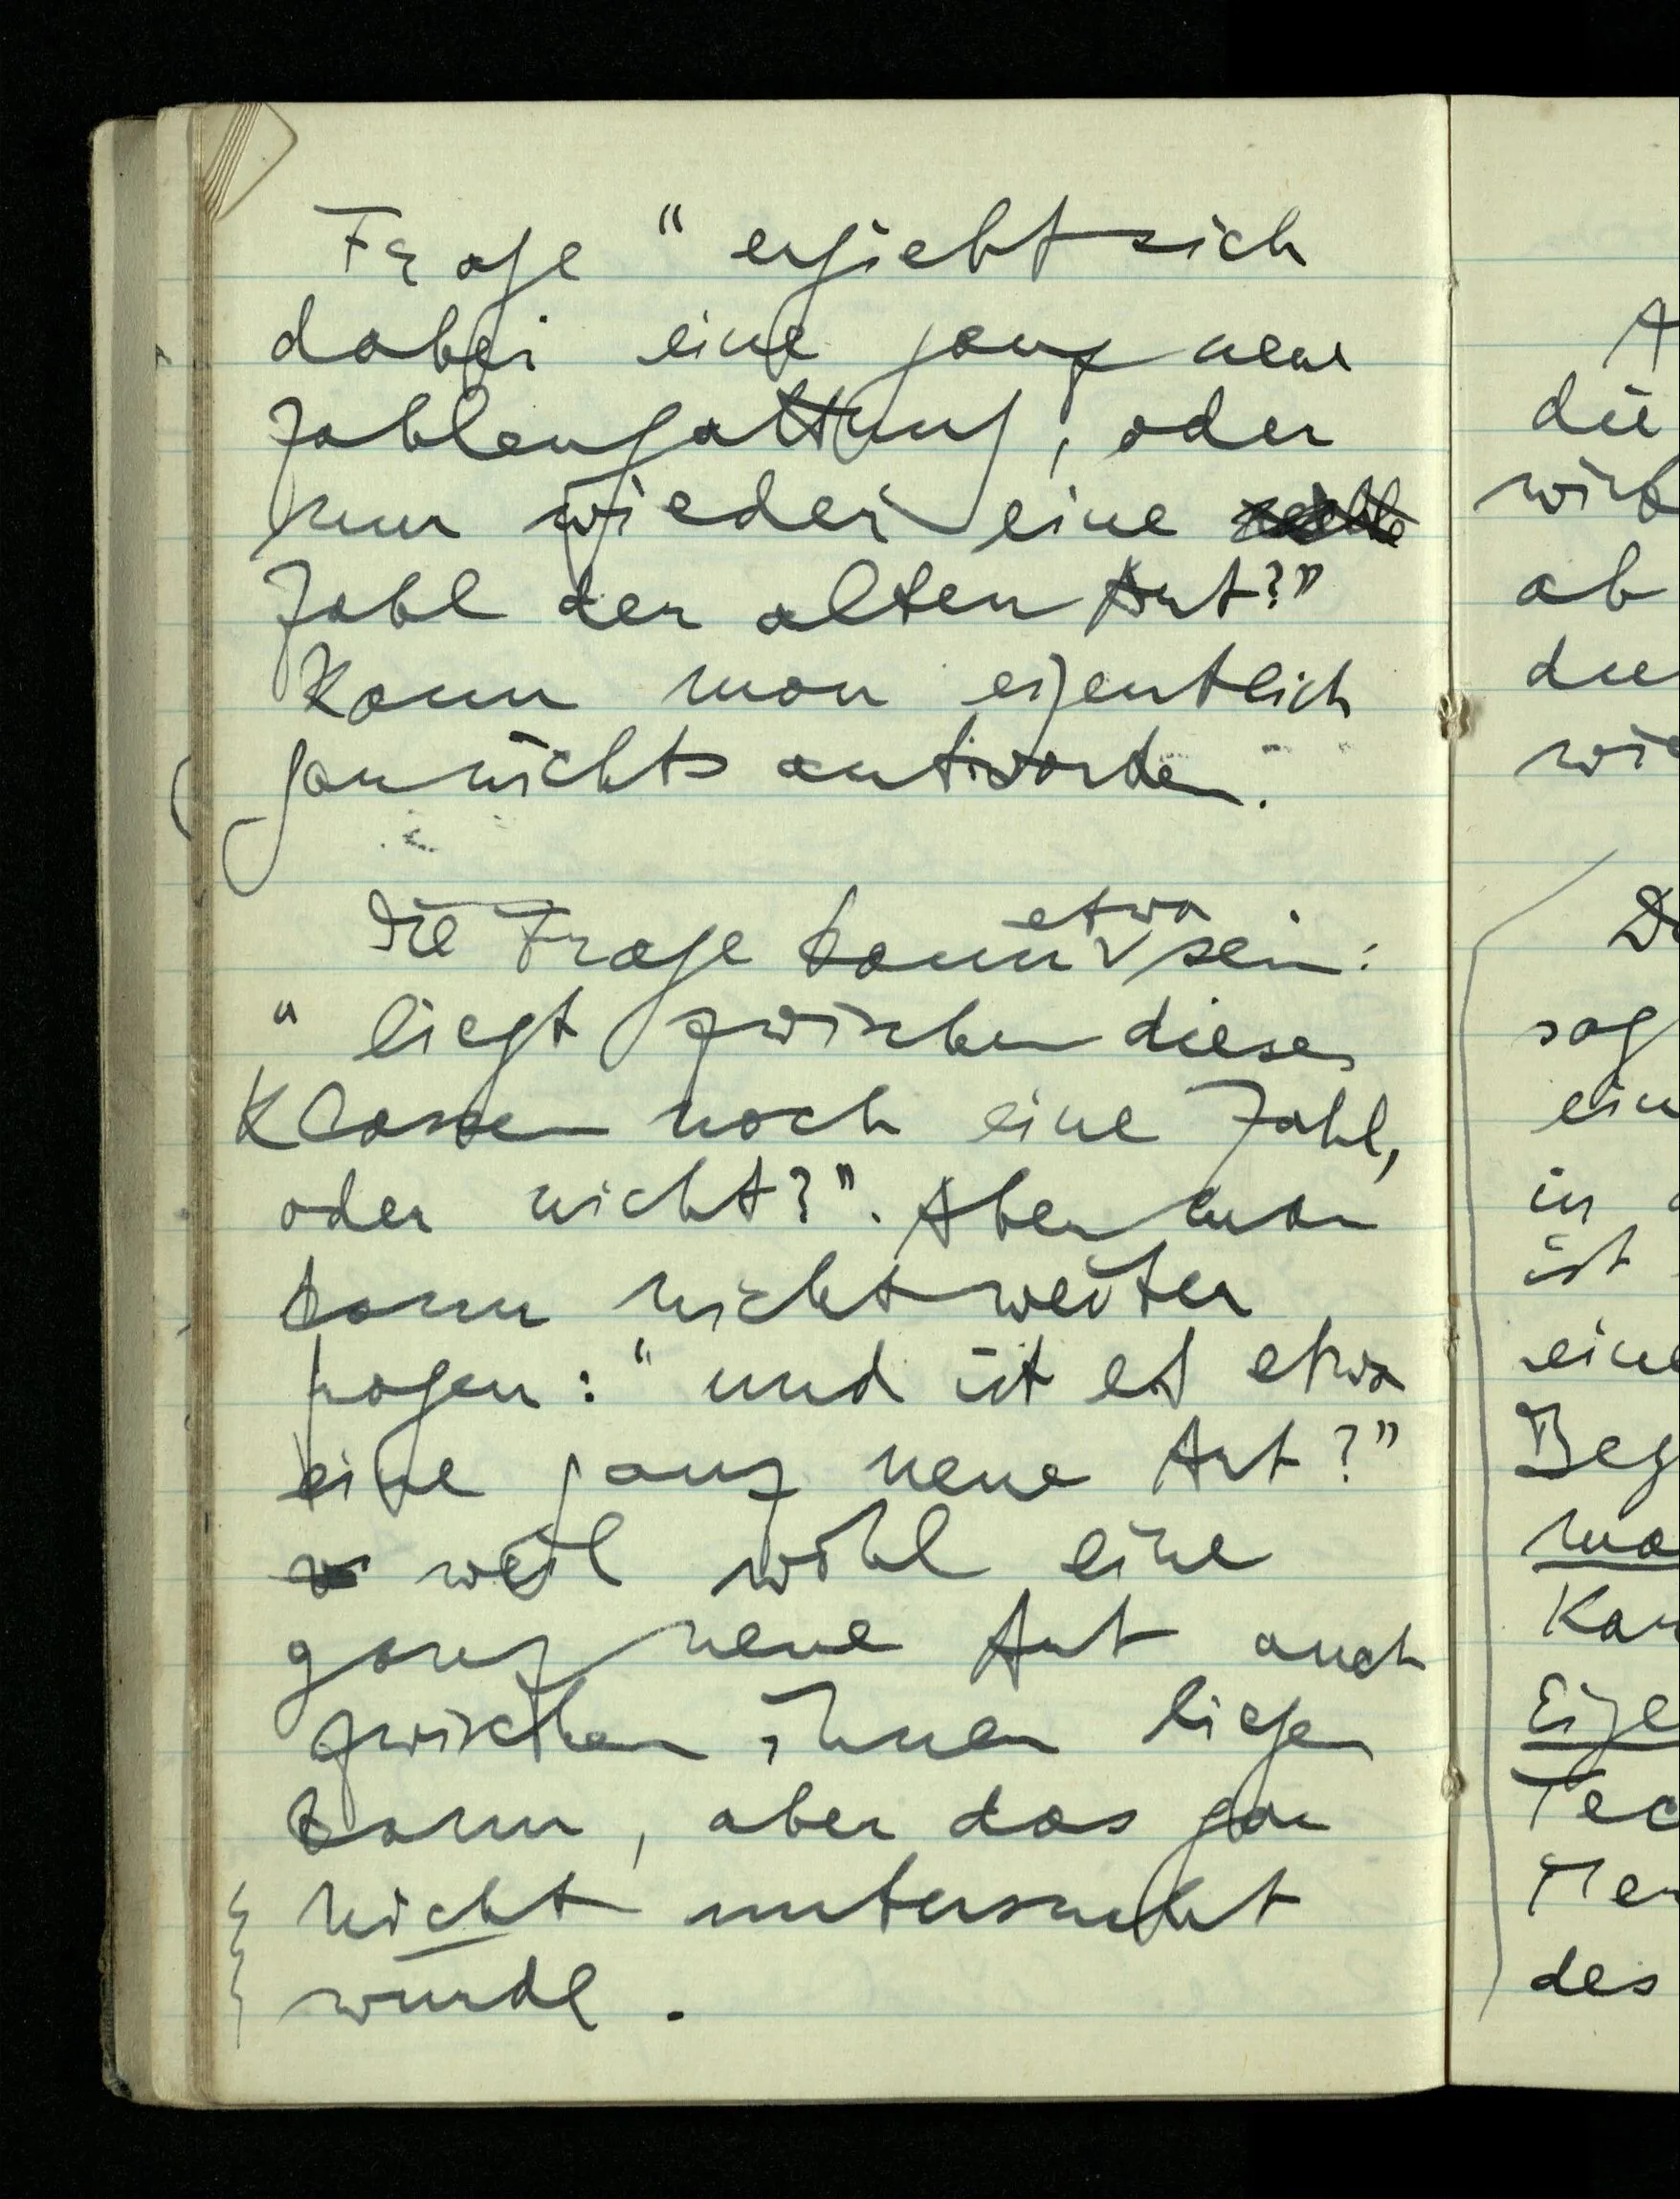 Frage "ergiebt sich
dabei eine ganz neue
Zahlengattung, oder
nur wieder eine
Zahl der alten Art?"
Kann man eigentlich
garnichts antworten.
Die Frage kann etwa sein:
"liegt zwischen diesen
Klassen noch eine Zahl,
oder nicht?". Aber man
kann nicht weiter
fragen: "und ist es etwa
eine ganz neue Art?"
weil wohl eine
ganz neue Art auch
zwischen ihnen liegen
kann, aber das gar
nicht untersucht
wurde.
A
die
wir
ab
die
wie
sag
ein
in
ist
eine
Beg
ma
Kan
Eige
Tec
Men
des